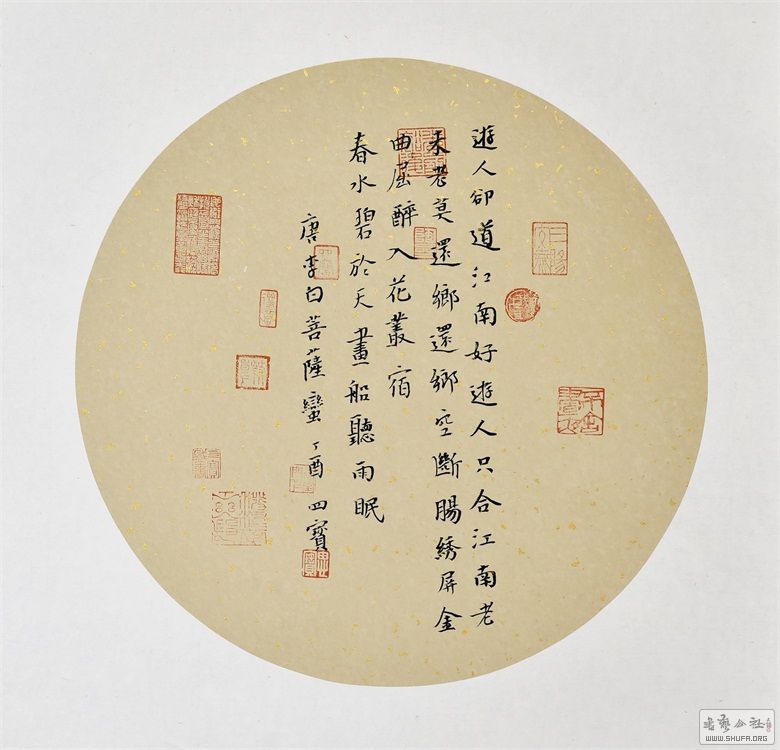 遊人卻道江南好遊人只合江南老
未老莫還鄉還鄉空斷腸綉屏金
曲屈醉入花叢宿
春水碧於天畫船聽雨眠
唐李白菩薩蠻丁酉四寶
書藝公社
WWW.SHUFA.ORG